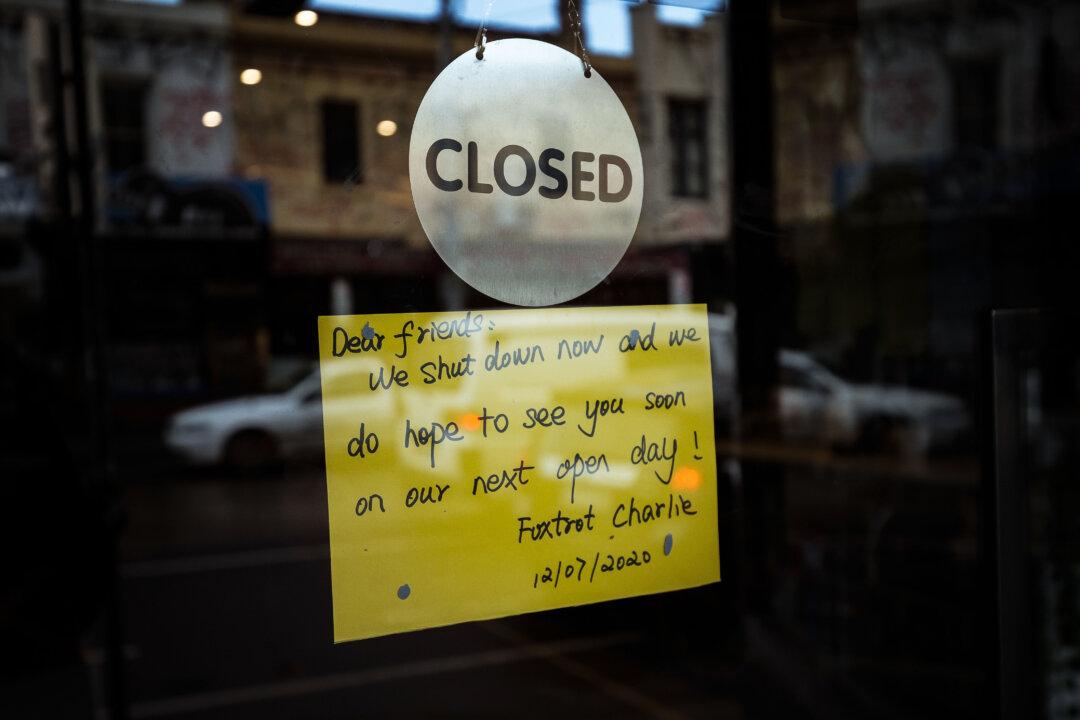 CLOSED
Dear friends:
We shut down now and we
do hope to see you soon
on our next open day!
Foxtrot Charlie
12/07/2020